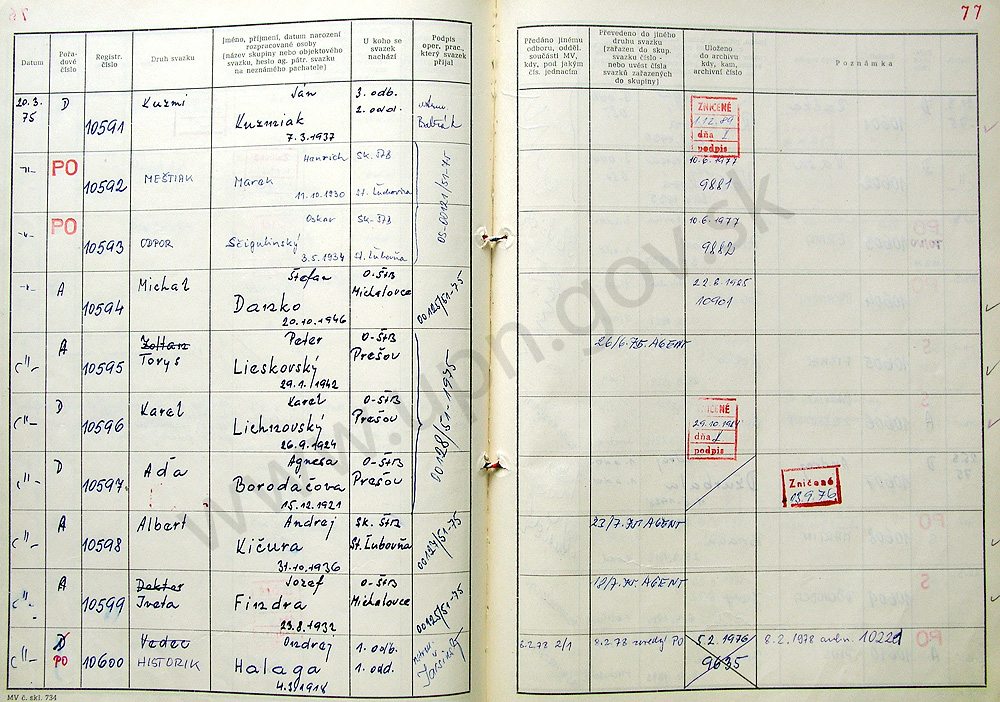 76
77
Datum
Pořadové číslo
Registr. číslo
Druh svazku
Jméno, příjmení, datum narození rozpracované osoby (název skupiny nebo objektového svazku, heslo ag. pátr. svazku na neznámého pachatele)
U koho se svazek nachází
Podpis oper. prac., který svazek přijal
Předáno jinému odboru, odděl. součásti MV, kdy, pod jakým čís. jednacím
Převedeno do jiného druhu svazku (zařazen do skup. svazku číslo - nebo uvést čísla svazků zařazených do skupiny)
Uloženo do archivu kdy, kam, archivní číslo
Poznámka
20.3. 75 D 10591 Kuzmi Ján Kuzmiak 7.3.1937 3. odb. 2. odd.
ZNIČENÉ 1.12.89 dňa podpis
-"- PO 10592 MEŠTIAK Henrich Marek 11.10.1930 Sk. ŠTB St. Ľubovňa OS-00121/51-75
10.6.1977 9881
-"- PO 10593 ODPOR Oskar 3.5.1934 Sk. ŠTB St. Ľubovňa
10.6.1977 9882
-"- A 10594 Michal Štefan Danko 20.10.1946 O-ŠtB Michalovce 00125/51-75
10901
-"- A 10595 Zoltan Torys Peter Lieskovský 29.1.1942 O-ŠtB Prešov 00128/51-1975
26/6.75. AGENT
-"- D 10596 Karel Karel 26.9.1924 O-ŠtB Prešov
ZNIČENÉ dňa podpis
-"- D 10597 Aďa Agneša Borodačova 15.12.1921 O-ŠtB Prešov
Zničené 13.9.76
-"- A 10598 Albert Andrej Kičura 31.10.1936 Sk. ŠtB St. Ľubovňa 00127/51-75
23/7.75. AGENT
-"- A 10599 Doktor Iveta Jozef Findra 23.8.1932 O-ŠtB Michalovce 00125/51-75
18/7.75. AGENT
-"- D PO 10600 Vedec HISTORIK Ondrej Halaga 1. odb. 1. odd.
PO 5.2.1976 9635 8.2.1978 10221
MV č. skl. 734
www.upn.gov.sk